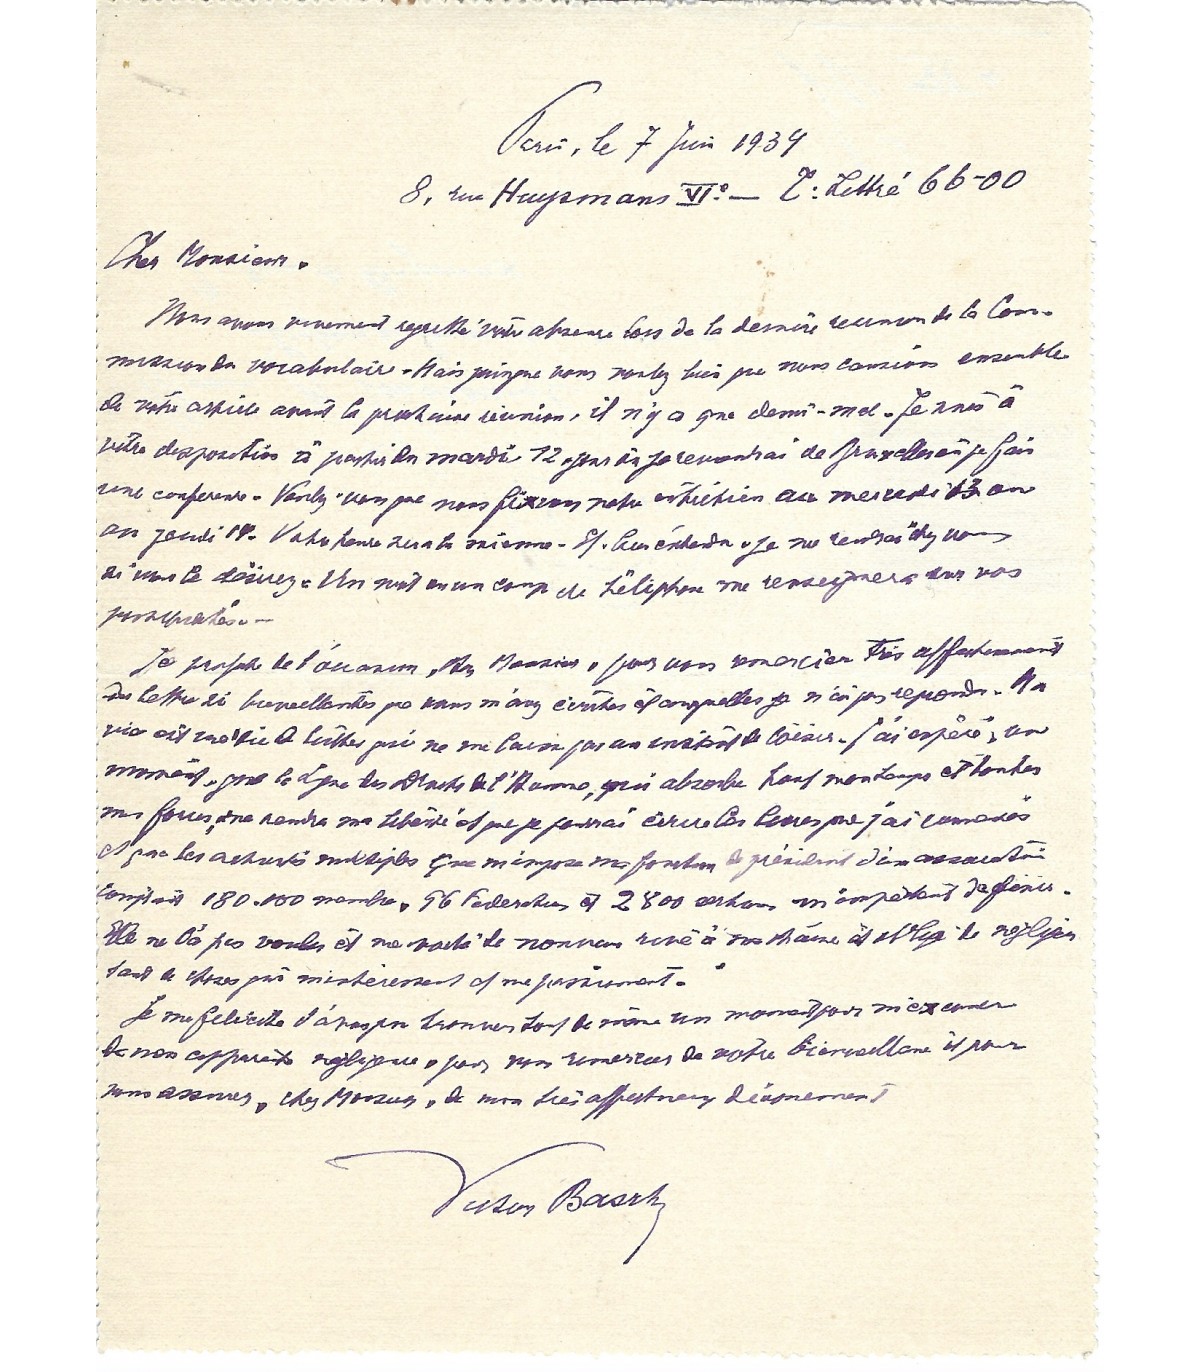 Paris, le 7 Juin 1934
8, rue Huysmans VIe — T: Littré 66-00
Cher Monsieur.
Nous avons vivement regretté votre absence lors de la dernière réunion de la Com-
mission du vocabulaire. Mais puisque vous voulez bien que nous causions ensemble
de votre article avant la prochaine réunion, il n'y a que demi-mal. Je suis à
votre disposition à partir du mardi 12, jour où je reviendrai de Bruxelles où je fais
une conférence. Voulez-vous que nous fixions notre entretien au mercredi 13 ou
au jeudi 14. Votre heure sera la mienne. Et, bien entendu, je me rendrai chez vous
si vous le désirez. Un mot ou un coup de téléphone me renseignera sur vos

Je profite de l'occasion, cher Monsieur, pour vous remercier très affectueusement
des lettres si bienveillantes que vous m'avez écrites et auxquelles je n'ai pas répondu. Ma
vie est une vie de luttes qui ne me laisse pas un instant de loisir. J'ai espéré, un
moment, que la Ligue des Droits de l'Homme, qui absorbe tout mon temps et toutes
mes forces, me rendra ma liberté et que je pourrai écrire les livres que j'ai
et que les activités multiples que m'impose ma fonction de président d'une association
comptant 180.000 membres, 96 Fédérations et 2800 sections m'empêchent de finir.
Elle ne l'a pas voulu et me voilà de nouveau rivé à ma chaîne et obligé de négliger
tant de choses qui m'intéressent et me passionnent.
Je me félicite d'avoir pu trouver tout de même un moment pour m'excuser
de mon apparente négligence, pour vous remercier de votre bienveillance et pour
vous assurer, cher Monsieur, de mon très affectueux dévouement
Victor Basch